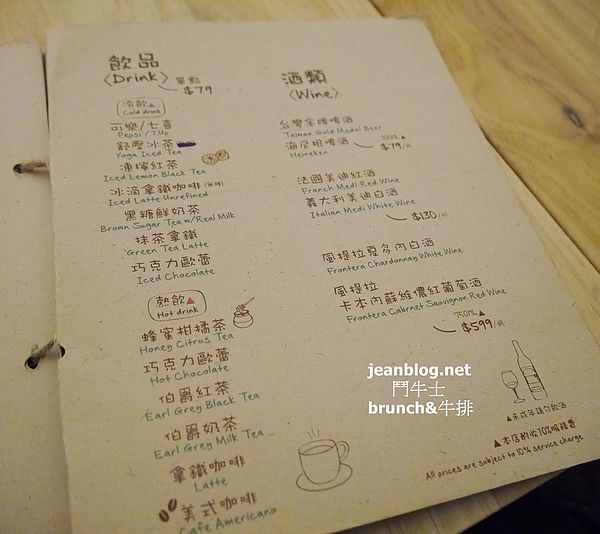 飲品
〈Drink〉 單點
$79
冷飲▲
Cold drink
可樂/七喜
Pepsi / 7 Up
舒壓冰茶
Yoga Iced Tea
凍檸紅茶
Iced Lemon Black Tea
冰滴拿鐵咖啡(無糖)
Iced Latte Unrefined
黑糖鮮奶茶
Brown Sugar Tea w/Real Milk
抹茶拿鐵
Green Tea Latte
巧克力歐蕾
Iced Chocolate
熱飲▲
Hot drink
蜂蜜柑橘茶
Honey Citrus Tea
巧克力歐蕾
Hot Chocolate
伯爵紅茶
Earl Grey Black Tea
伯爵奶茶
Earl Grey Milk Tea
拿鐵咖啡
Latte
美式咖啡
Cafe Americano
酒類
〈Wine〉
台灣金牌啤酒
Taiwan Gold Medal Beer
海尼根啤酒
Heineken
$79/瓶
法國美迪紅酒
Franch Medi Red Wine
義大利美迪白酒
Italian Medi White Wine
$130/杯
風提拉夏多內白酒
Frontera Chardonnay White Wine
風提拉
卡本內蘇維儂紅葡萄酒
Frontera Cabrnet Sauvignon Red Wine
750ML▲
$599/瓶
jeanblog.net
鬥牛士
brunch&牛排
▲未成年請勿飲酒
▲本店酌收10%服務費
All prices are subject to 10% service charge